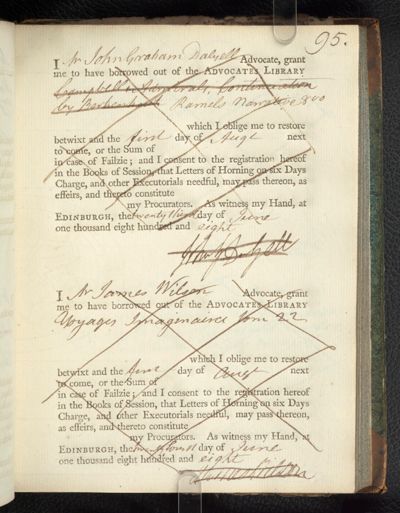 95.
I Mr John Graham Dalyell Advocate, grant
me to have borrowed out of the ADVOCATES LIBRARY
Campbell's Admirals, Continuation
by Berkenhout Ramels Narrative 8vo
which I oblige me to restore
betwixt and the first day of Augt next
to come, or the Sum of
in case of Failzie; and I consent to the registration hereof
in the Books of Session, that Letters of Horning on six Days
Charge, and other Executorials needful, may pass thereon, as
effeirs, and thereto constitute
my Procurators. As witness my Hand, at
EDINBURGH, the twenty third day of June
one thousand eight hundred and eight
John G. Dalyell
I Mr James Wilson Advocate, grant
me to have borrowed out of the ADVOCATES LIBRARY
Voyages Imaginaires Tom 22
which I oblige me to restore
betwixt and the first day of augt next
to come, or the Sum of
in case of Failzie; and I consent to the registration hereof
in the Books of Session, that Letters of Horning on six Days
Charge, and other Executorials needful, may pass thereon,
as effeirs, and thereto constitute
my Procurators. As witness my Hand, at
EDINBURGH, the day of June
one thousand eight hundred and eight
James Wilson